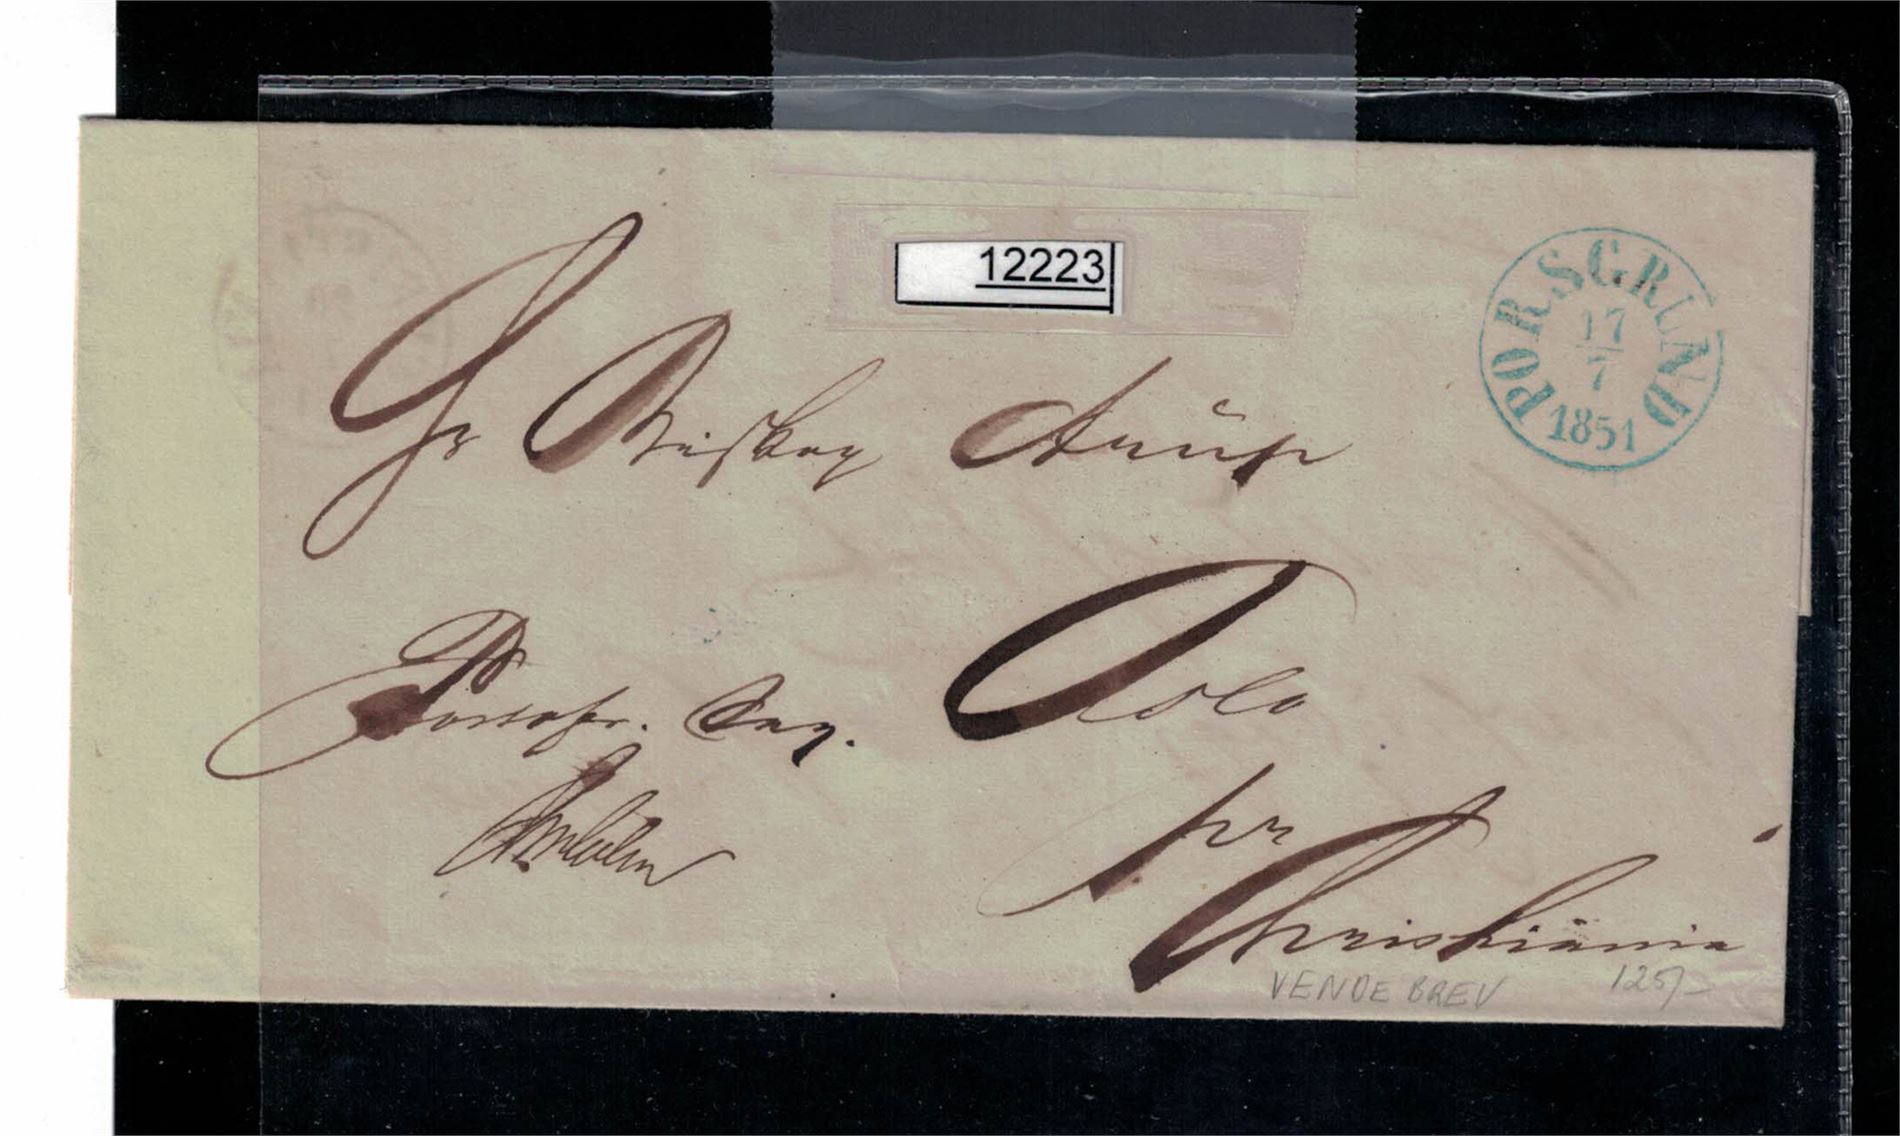 12223
PORSGRUND
17
7
1851
Hr Biskop Arup
Oslo
Portofr. Sag.
pr
Christiania
VENDEBREV 125/-